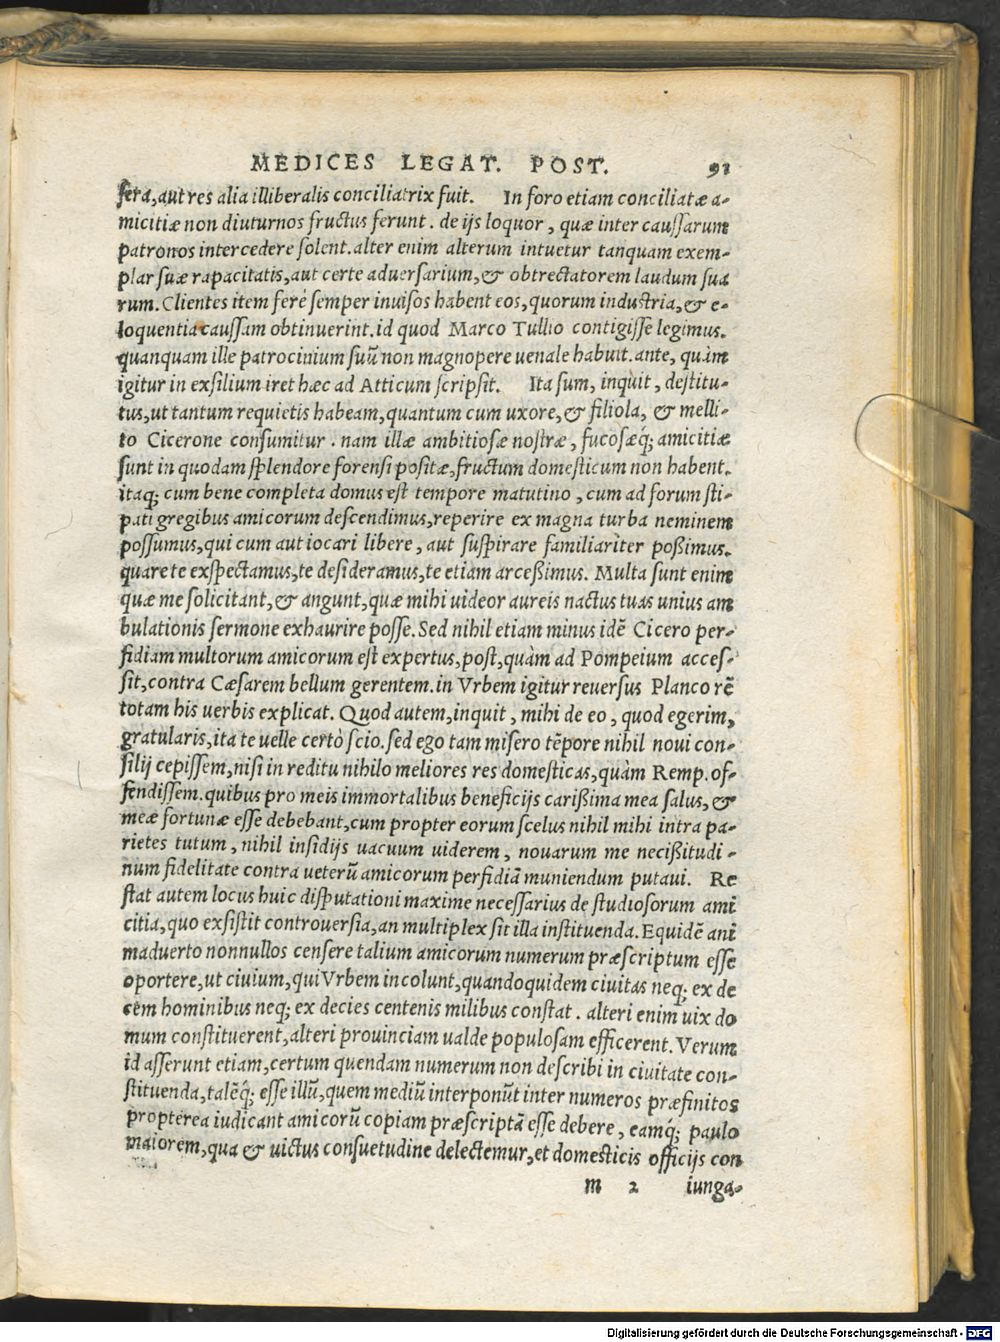 MEDICES LEGAT. POST. 91
fera, aut res alia illiberalis conciliatrix fuit. In foro etiam conciliatæ a-
micitiæ non diuturnos fructus ferunt. de ijs loquor, quæ inter caussarum
patronos intercedere solent. alter enim alterum intuetur tanquam exem-
plar suæ rapacitatis, aut certe aduersarium, & obtrectatorem laudum sua
rum. Clientes item ferè semper inuisos habent eos, quorum industria, & e-
loquentia caussam obtinuerint. id quod Marco Tullio contigisse legimus.
quanquam ille patrocinium suū non magnopere uenale habuit. ante, quàm
igitur in exsilium iret hæc ad Atticum scripsit. Ita sum, inquit, destitu-
tus, ut tantum requietis habeam, quantum cum uxore, & filiola, & melli-
to Cicerone consumitur. nam illæ ambitiosæ nostræ, fucosæq́; amicitiæ
sunt in quodam splendore forensi positæ, fructum domesticum non habent.
itaq; cum bene completa domus est tempore matutino, cum ad forum sti-
pati gregibus amicorum descendimus, reperire ex magna turba neminem
possumus, qui cum aut iocari libere, aut suspirare familiariter poßimus.
quare te exspectamus, te desideramus, te etiam arceßimus. Multa sunt enim
quæ me solicitant, & angunt, quæ mihi uideor aureis nactus tuas unius am
bulationis sermone exhaurire posse. Sed nihil etiam minus idē Cicero per-
fidiam multorum amicorum est expertus, post, quàm ad Pompeium acces-
sit, contra Cæsarem bellum gerentem. in Vrbem igitur reuersus Planco rē
totam his uerbis explicat. Quod autem, inquit, mihi de eo, quod egerim,
gratularis, ita te uelle certò scio. sed ego tam misero tēpore nihil noui con-
silij cepissem, nisi in reditu nihilo meliores res domesticas, quàm Remp. of-
fendissem. quibus pro meis immortalibus beneficijs carißima mea salus, &
meæ fortunæ esse debebant, cum propter eorum scelus nihil mihi intra pa-
rietes tutum, nihil insidijs uacuum uiderem, nouarum me necißitudi-
num fidelitate contra ueterū amicorum perfidiā muniendum putaui. Re
stat autem locus huic disputationi maxime necessarius de studiosorum ami
citia, quo exsistit controuersia, an multiplex sit illa instituenda. Equidē ani
maduerto nonnullos censere talium amicorum numerum præscriptum esse
oportere, ut ciuium, qui Vrbem incolunt, quandoquidem ciuitas neq; ex de
cem hominibus neq; ex decies centenis milibus constat. alteri enim uix do
mum constituerent, alteri prouinciam ualde populosam efficerent. Verum
id asserunt etiam, certum quendam numerum non describi in ciuitate con-
stituenda, talēq́; esse illū, quem mediū interponūt inter numeros præfinitos
propterea iudicant amicorū copiam præscriptā esse debere, eamq́; paulo
maiorem, qua & uictus consuetudine delectemur, et domesticis officijs con
m 2 iunga-
Digitalisierung gefördert durch die Deutsche Forschungsgemeinschaft - DFG